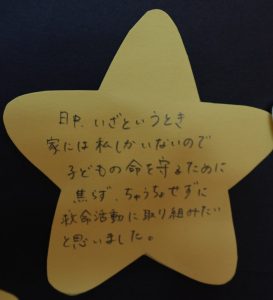 日中、いざというとき
家には私しかいないので
子どもの命を守るために
焦らず、ちゅうちょせずに
救命活動に取り組みたい
と思いました。